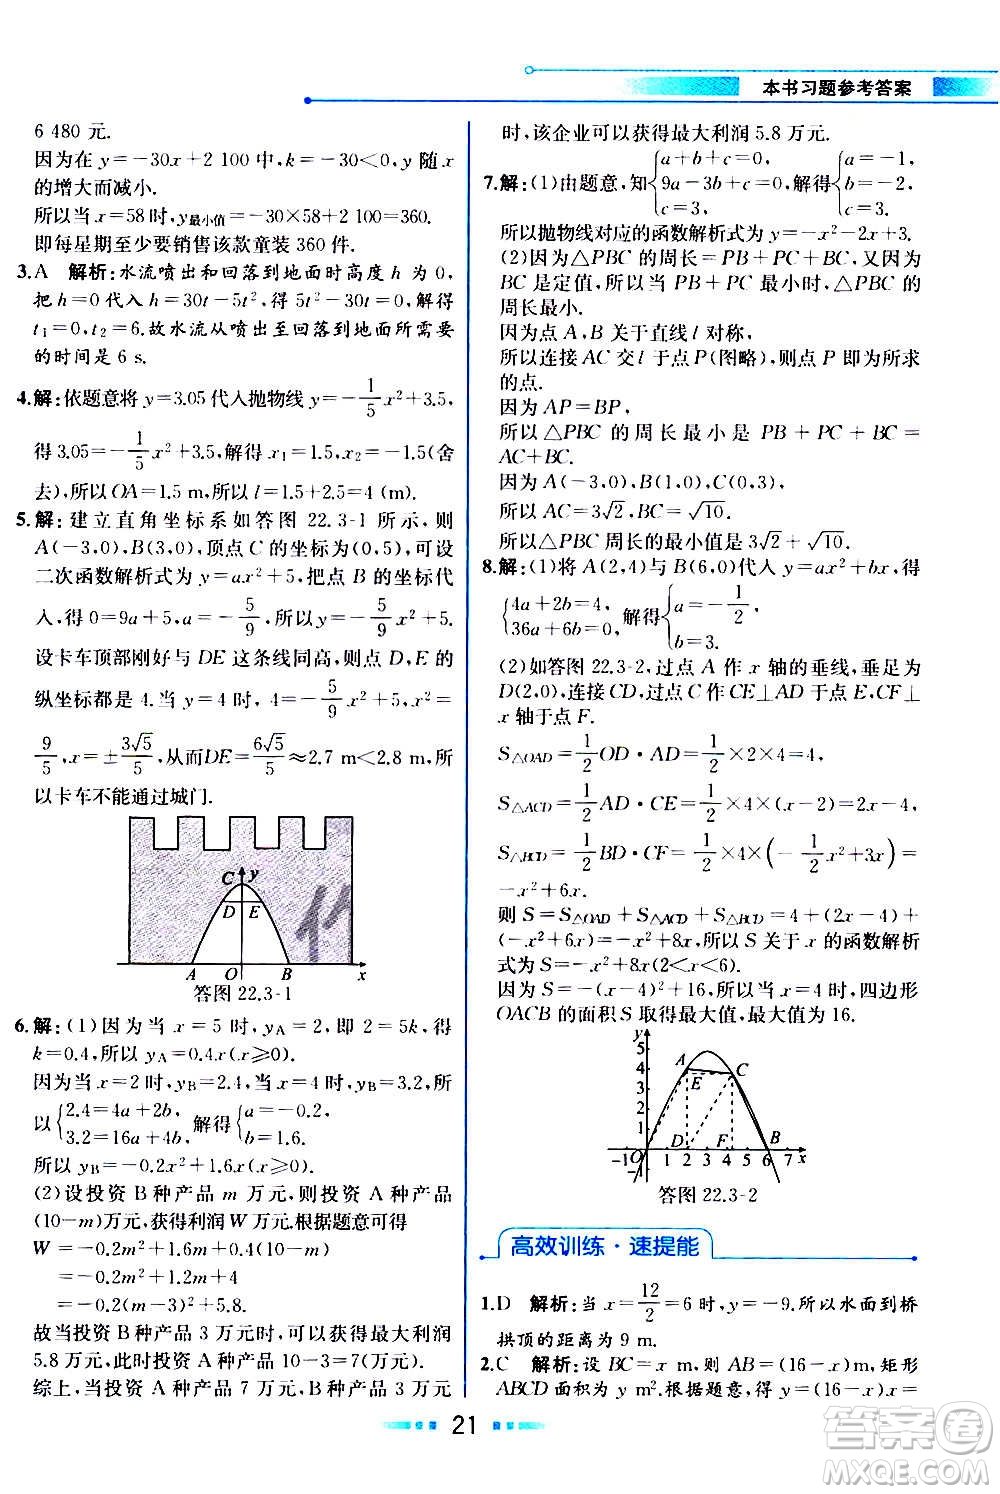 本书习题参考答案
6 480 元.
因为在 y=-30x+2 100 中,k=-30<0,y 随 x
的增大而减小.
所以当 x=58 时,y最小值=-30×58+2 100=360.
即每星期至少要销售该款童装 360 件.
3.A 解析:水流喷出和回落到地面时高度 h 为 0,
把 h=0 代入 h=30t-5t²,得 5t²-30t=0,解得
t₁=0,t₂=6.故水流从喷出至回落到地面所需要
的时间是 6 s.
4.解:依题意将 y=3.05 代入抛物线 y=-1/5x²+3.5,
得 3.05=-1/5x²+3.5,解得 x₁=1.5,x=-1.5(舍
去),所以 OA=1.5 m,所以 l=1.5+2.5=4 (m).
5.解:建立直角坐标系如答图 22.3-1 所示,则
A(-3,0),B(3,0),顶点 C 的坐标为(0,5),可设
二次函数解析式为 y=ax²+5,把点 B 的坐标代
入,得 0=9a+5,a=-5/9,所以 y=-5/9x²+5.
设卡车顶部刚好与 DE 这条线同高,则点 D,E 的
纵坐标都是 4.当 y=4 时,4=-5/9x²+5,x²=
9/5,x=±3√5/5,从而DE=6√5/5≈2.7 m<2.8 m,所
以卡车不能通过城门.
C y
D E
A O B x
答图 22.3-1
6.解:(1)因为当 x=5 时,yA=2,即 2=5k,得
k=0.4,所以 yA=0.4x(x≥0).
因为当 x=2 时,yB=2.4,当 x=4 时,yB=3.2,所
以{2.4=4a+2b, 3.2=16a+4b, 解得{a=-0.2, b=1.6.
所以 yB=-0.2x²+1.6x(x≥0).
(2)设投资 B 种产品 m 万元,则投资 A 种产品
(10-m)万元,获得利润 W 万元,根据题意可得
W=-0.2m²+1.6m+0.4(10-m)
=-0.2m²+1.2m+4
=-0.2(m-3)²+5.8.
故当投资 B 种产品 3 万元时,可以获得最大利润
5.8 万元,此时投资 A 种产品 10-3=7(万元).
综上,当投资 A 种产品 7 万元,B 种产品 3 万元
时,该企业可以获得最大利润 5.8 万元.
7.解:(1)由题意,知{a+b+c=0, 9a-3b+c=0, c=3, 解得{a=-1, b=-2, c=3.
所以抛物线对应的函数解析式为 y=-x²-2x+3.
(2)因为△PBC 的周长为 PB+PC+BC,又因为 BC
是定值,所以当 PB+PC 最小时,△PBC 的
周长最小.
因为点 A,B 关于直线 l 对称,
所以连接 AC 交 l 于点 P(图略),则点 P 即为所求
的点.
因为 AP=BP,
所以△PBC 的周长最小是 PB+PC+BC=
AC+BC.
因为 A(-3,0),B(1,0),C(0,3),
所以 AC=3√2,BC=√10.
所以△PBC 周长的最小值是 3√2+√10.
8.解:(1)将 A(2,4)与 B(6,0)代入 y=ax²+bx,得
{4a+2b=4, 36a+6b=0, 解得{a=-1/2, b=3.
(2)如答图 22.3-2,过点 A 作 x 轴的垂线,垂足为
D(2,0),连接 CD,过点 C 作 CE⊥AD 于点 E,CF⊥
x 轴于点 F.
S△OAD=1/2OD·AD=1/2×2×4=4,
S△ACD=1/2AD·CE=1/2×4×(x-2)=2x-4,
S△BCD=1/2BD·CF=1/2×4×(-1/2x²+3x)=
-x²+6x.
则 S=S△OAD+S△ACD+S△BCD=4+(2x-4)+
(-x²+6x)=-x²+8x,所以 S 关于 x 的函数解析
式为 S=-x²+8x(2<x<6).
因为 S=-(x-4)²+16,所以当 x=4 时,四边形
OACB 的面积 S 取得最大值,最大值为 16.
y
5
4
3
2
1
A
E C
O D F B x
-1 1 2 3 4 5 6 7
-1
答图 22.3-2
高效训练·速提能
1.D 解析:当 x=12/2=6 时,y=-9.所以水面到桥
拱顶的距离为 9 m.
2.C 解析:设 BC=x m,则 AB=(16-x)m,矩形
ABCD 面积为 y m².根据题意,得 y=(16-x)x=
21
答案圈
MXQE.COM